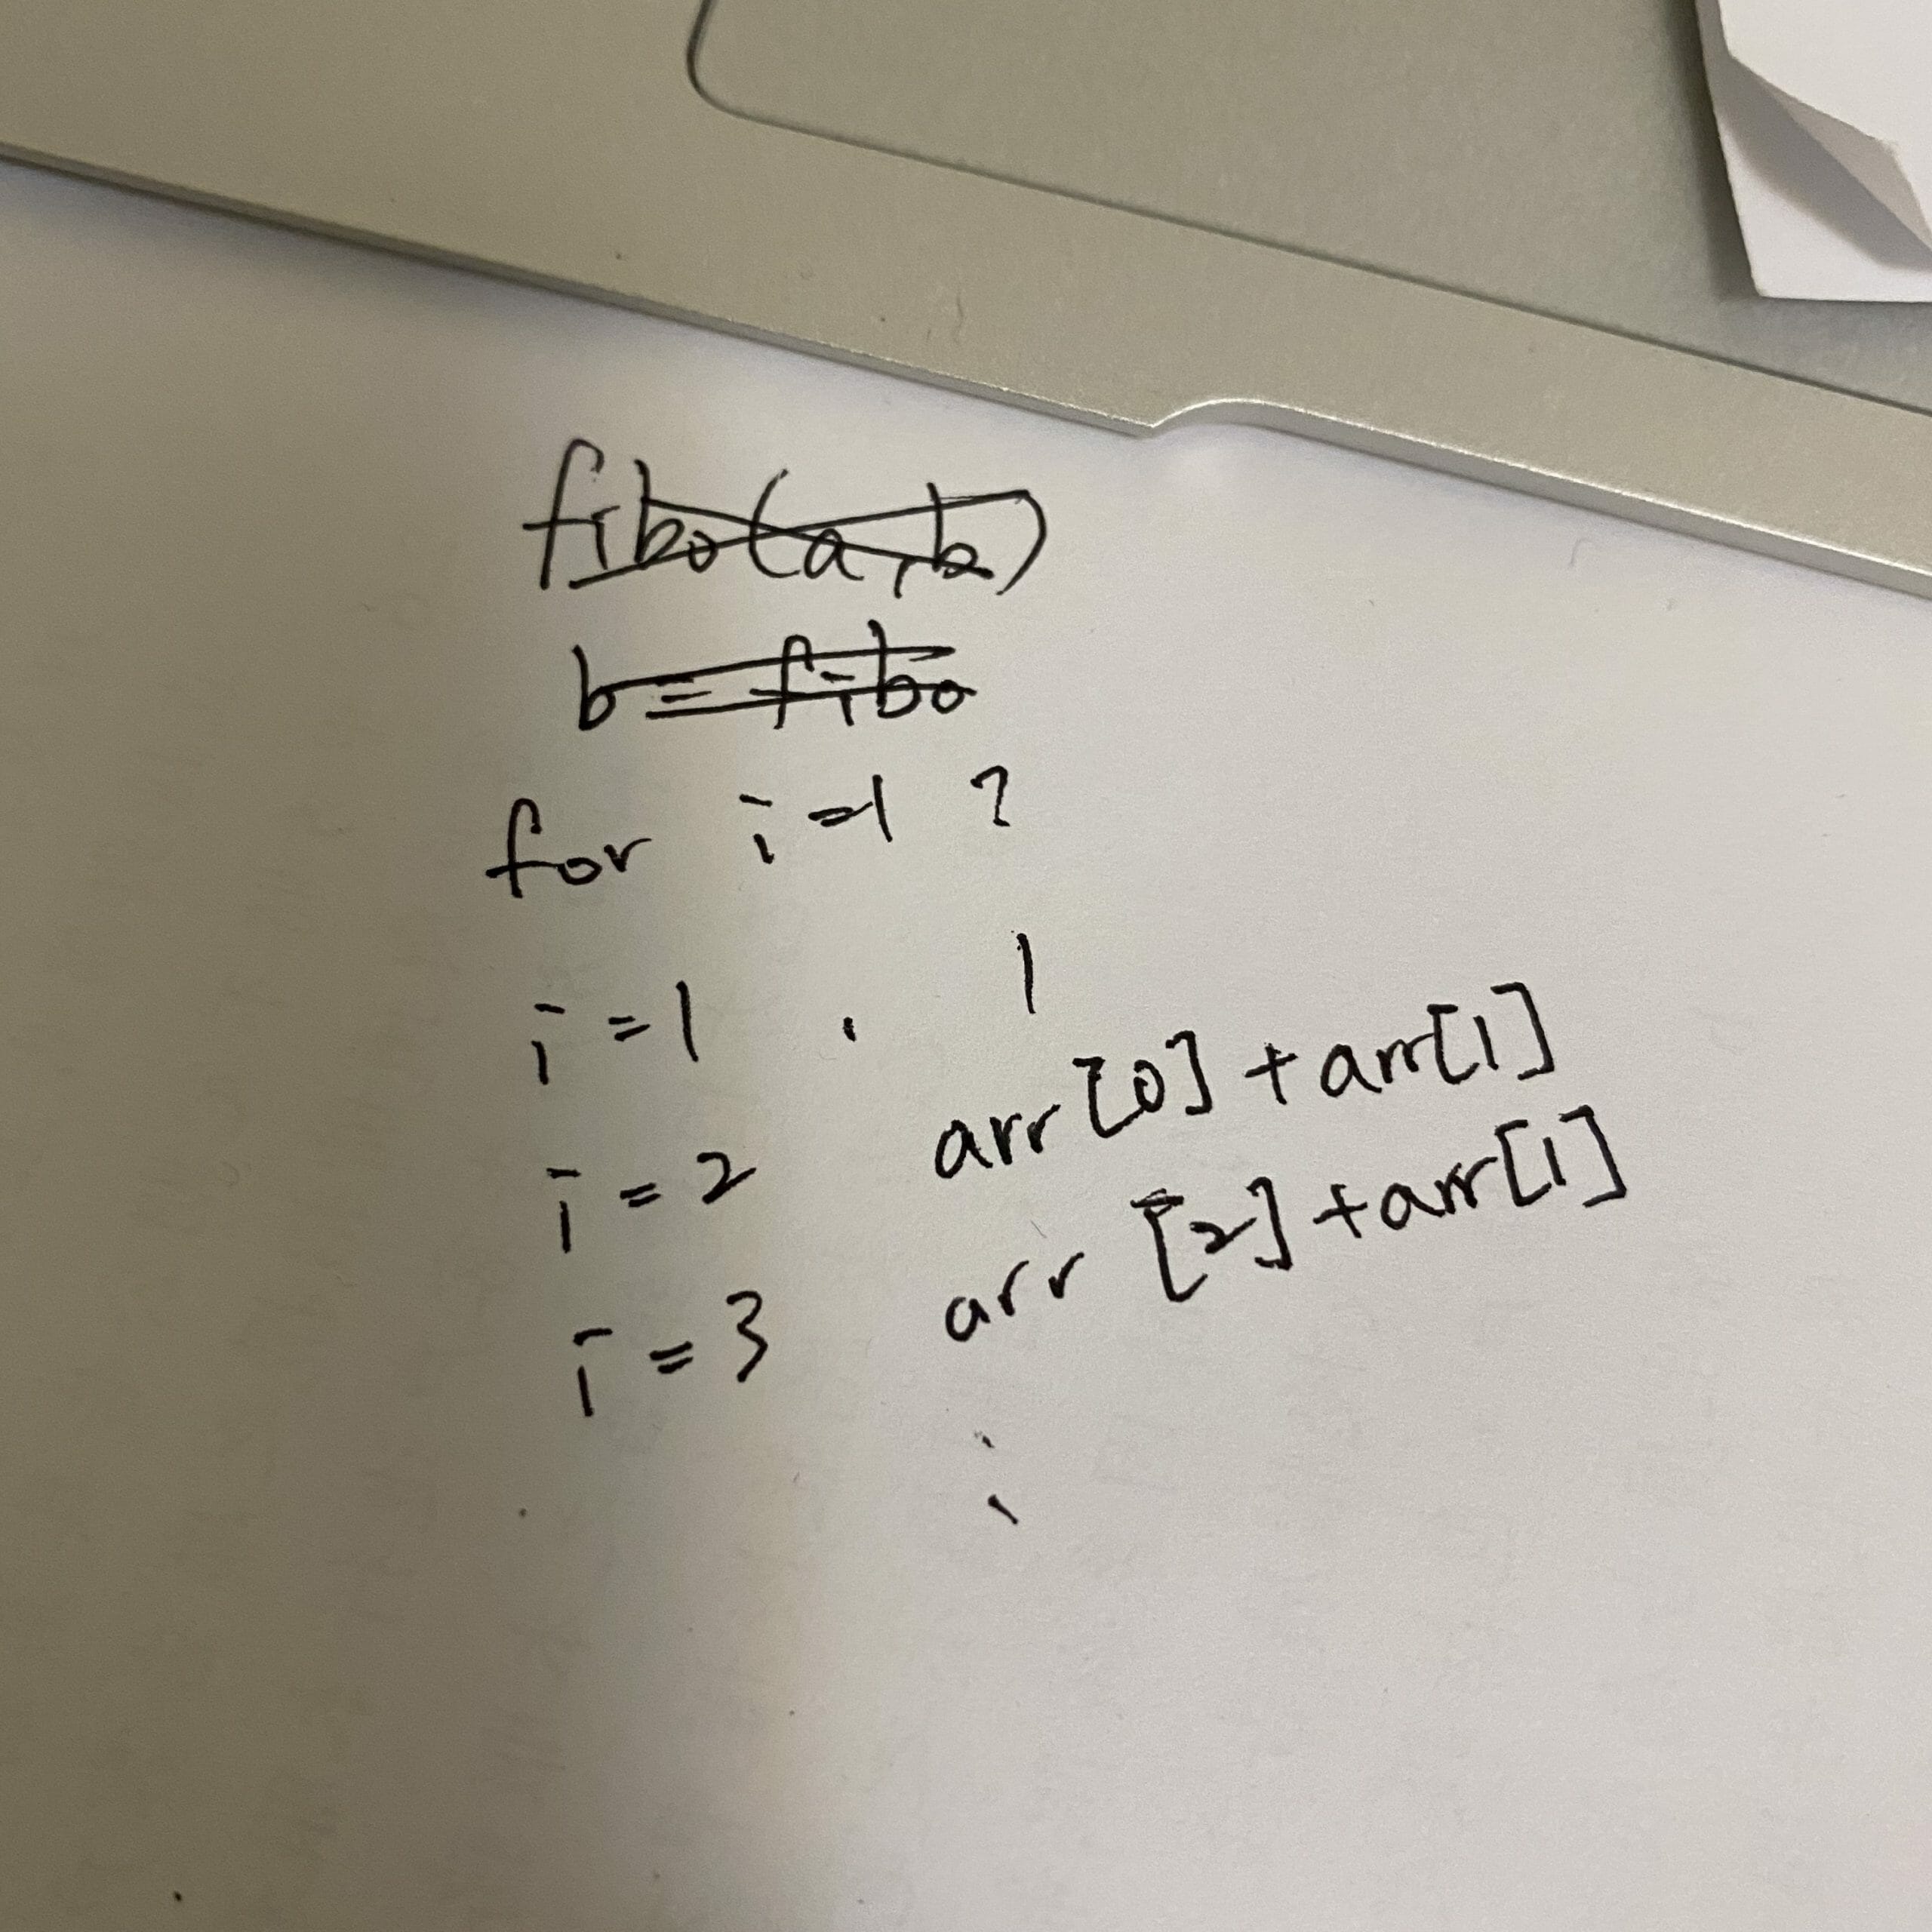 fibo(a,b)
b = fibo
for i=1 ?
i = 1 . 1
i = 2 arr[0] + arr[1]
i = 3 arr[2] + arr[1]
: